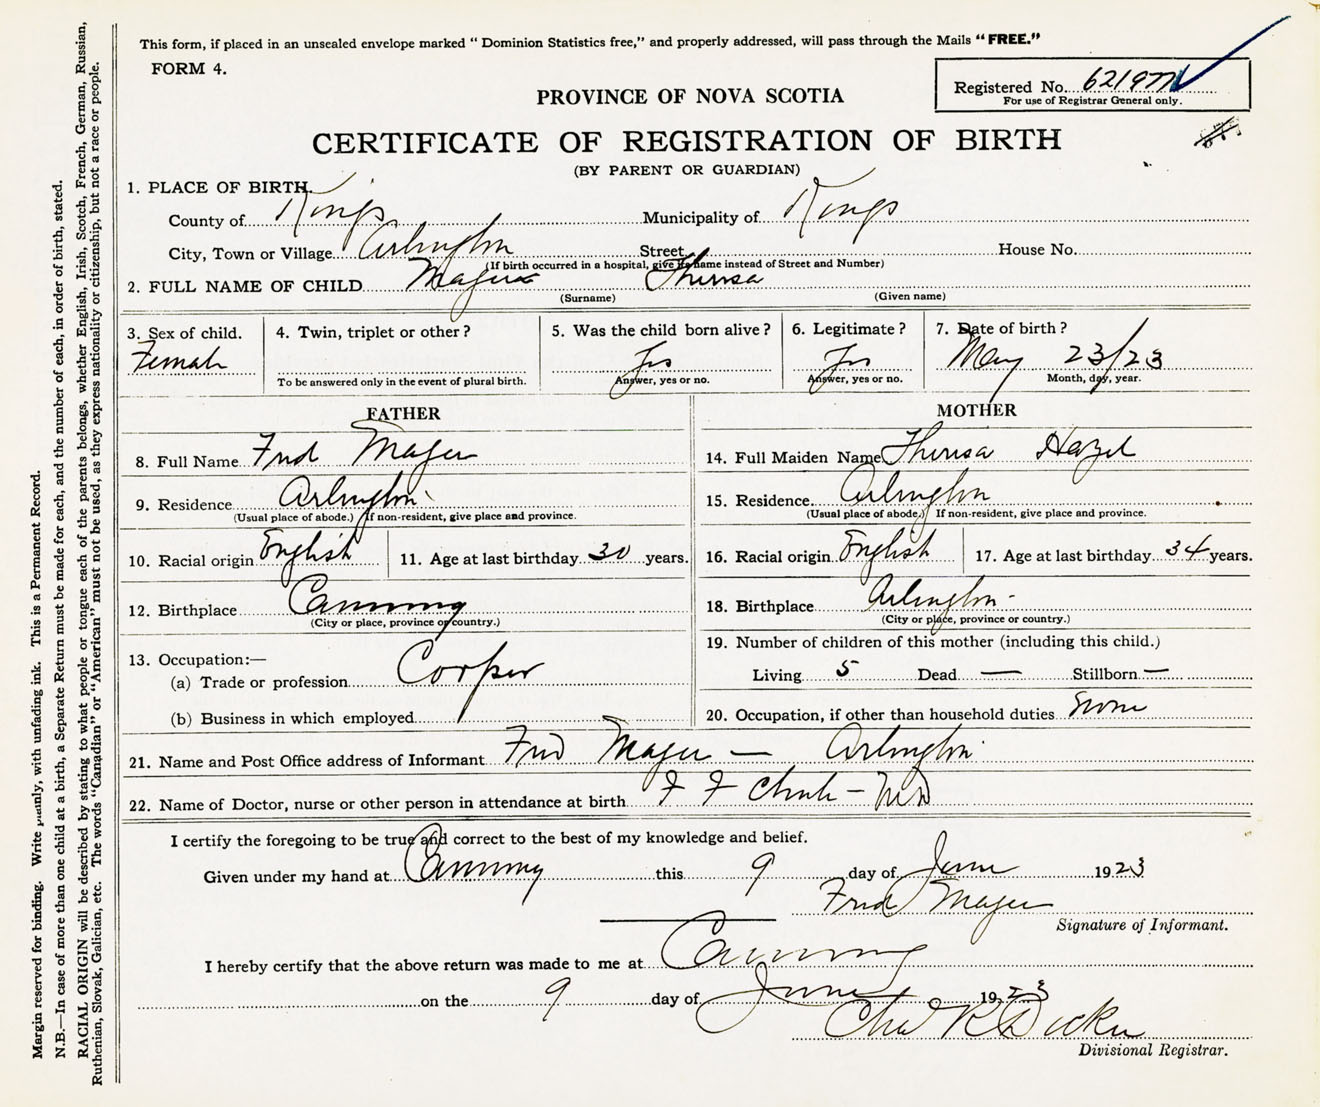 This form, if placed in an unsealed envelope marked "Dominion Statistics free," and properly addressed, will pass through the Mails "FREE."
FORM 4.
Registered No. 6219
For use of Registrar General only.
PROVINCE OF NOVA SCOTIA
CERTIFICATE OF REGISTRATION OF BIRTH
(BY PARENT OR GUARDIAN)
1. PLACE OF BIRTH.
County of Kings Municipality of Kings
City, Town or Village Arlington Street House No.
(If birth occurred in a hospital, give its name instead of Street and Number)
2. FULL NAME OF CHILD Theresa
(Surname) (Given name)
3. Sex of child. 4. Twin, triplet or other? 5. Was the child born alive? 6. Legitimate? 7. Date of birth?
Female Yes Yes May 23/23
To be answered only in the event of plural birth. Answer, yes or no. Answer, yes or no. Month, day, year.
FATHER MOTHER
8. Full Name Fred 14. Full Maiden Name Theresa Hazel
9. Residence Arlington 15. Residence Arlington
(Usual place of abode.) If non-resident, give place and province. (Usual place of abode.) If non-resident, give place and province.
10. Racial origin English 11. Age at last birthday 30 years. 16. Racial origin English 17. Age at last birthday 34 years.
12. Birthplace Canning 18. Birthplace Arlington
(City or place, province or country.) (City or place, province or country.)
19. Number of children of this mother (including this child.)
13. Occupation:—
(a) Trade or profession Cooper Living 5 Dead — Stillborn —
(b) Business in which employed 20. Occupation, if other than household duties None
21. Name and Post Office address of Informant Fred — Arlington
22. Name of Doctor, nurse or other person in attendance at birth F F — MD
I certify the foregoing to be true and correct to the best of my knowledge and belief.
Given under my hand at Canning this 9 day of June 1923
Fred
Signature of Informant.
I hereby certify that the above return was made to me at Canning
on the 9 day of June 1923
Chas R
Divisional Registrar.
Margin reserved for binding. Write plainly, with unfading ink. This is a Permanent Record.
N.B.—In case of more than one child at a birth, a Separate Return must be made for each, and the number of each, in order of birth, stated.
RACIAL ORIGIN will be described by stating to what people or tongue each of the parents belongs, whether English, Irish, Scotch, French, German, Russian,
Ruthenian, Slovak, Galician, etc. The words "Canadian" or "American" must not be used, as they express nationality or citizenship, but not a race or people.